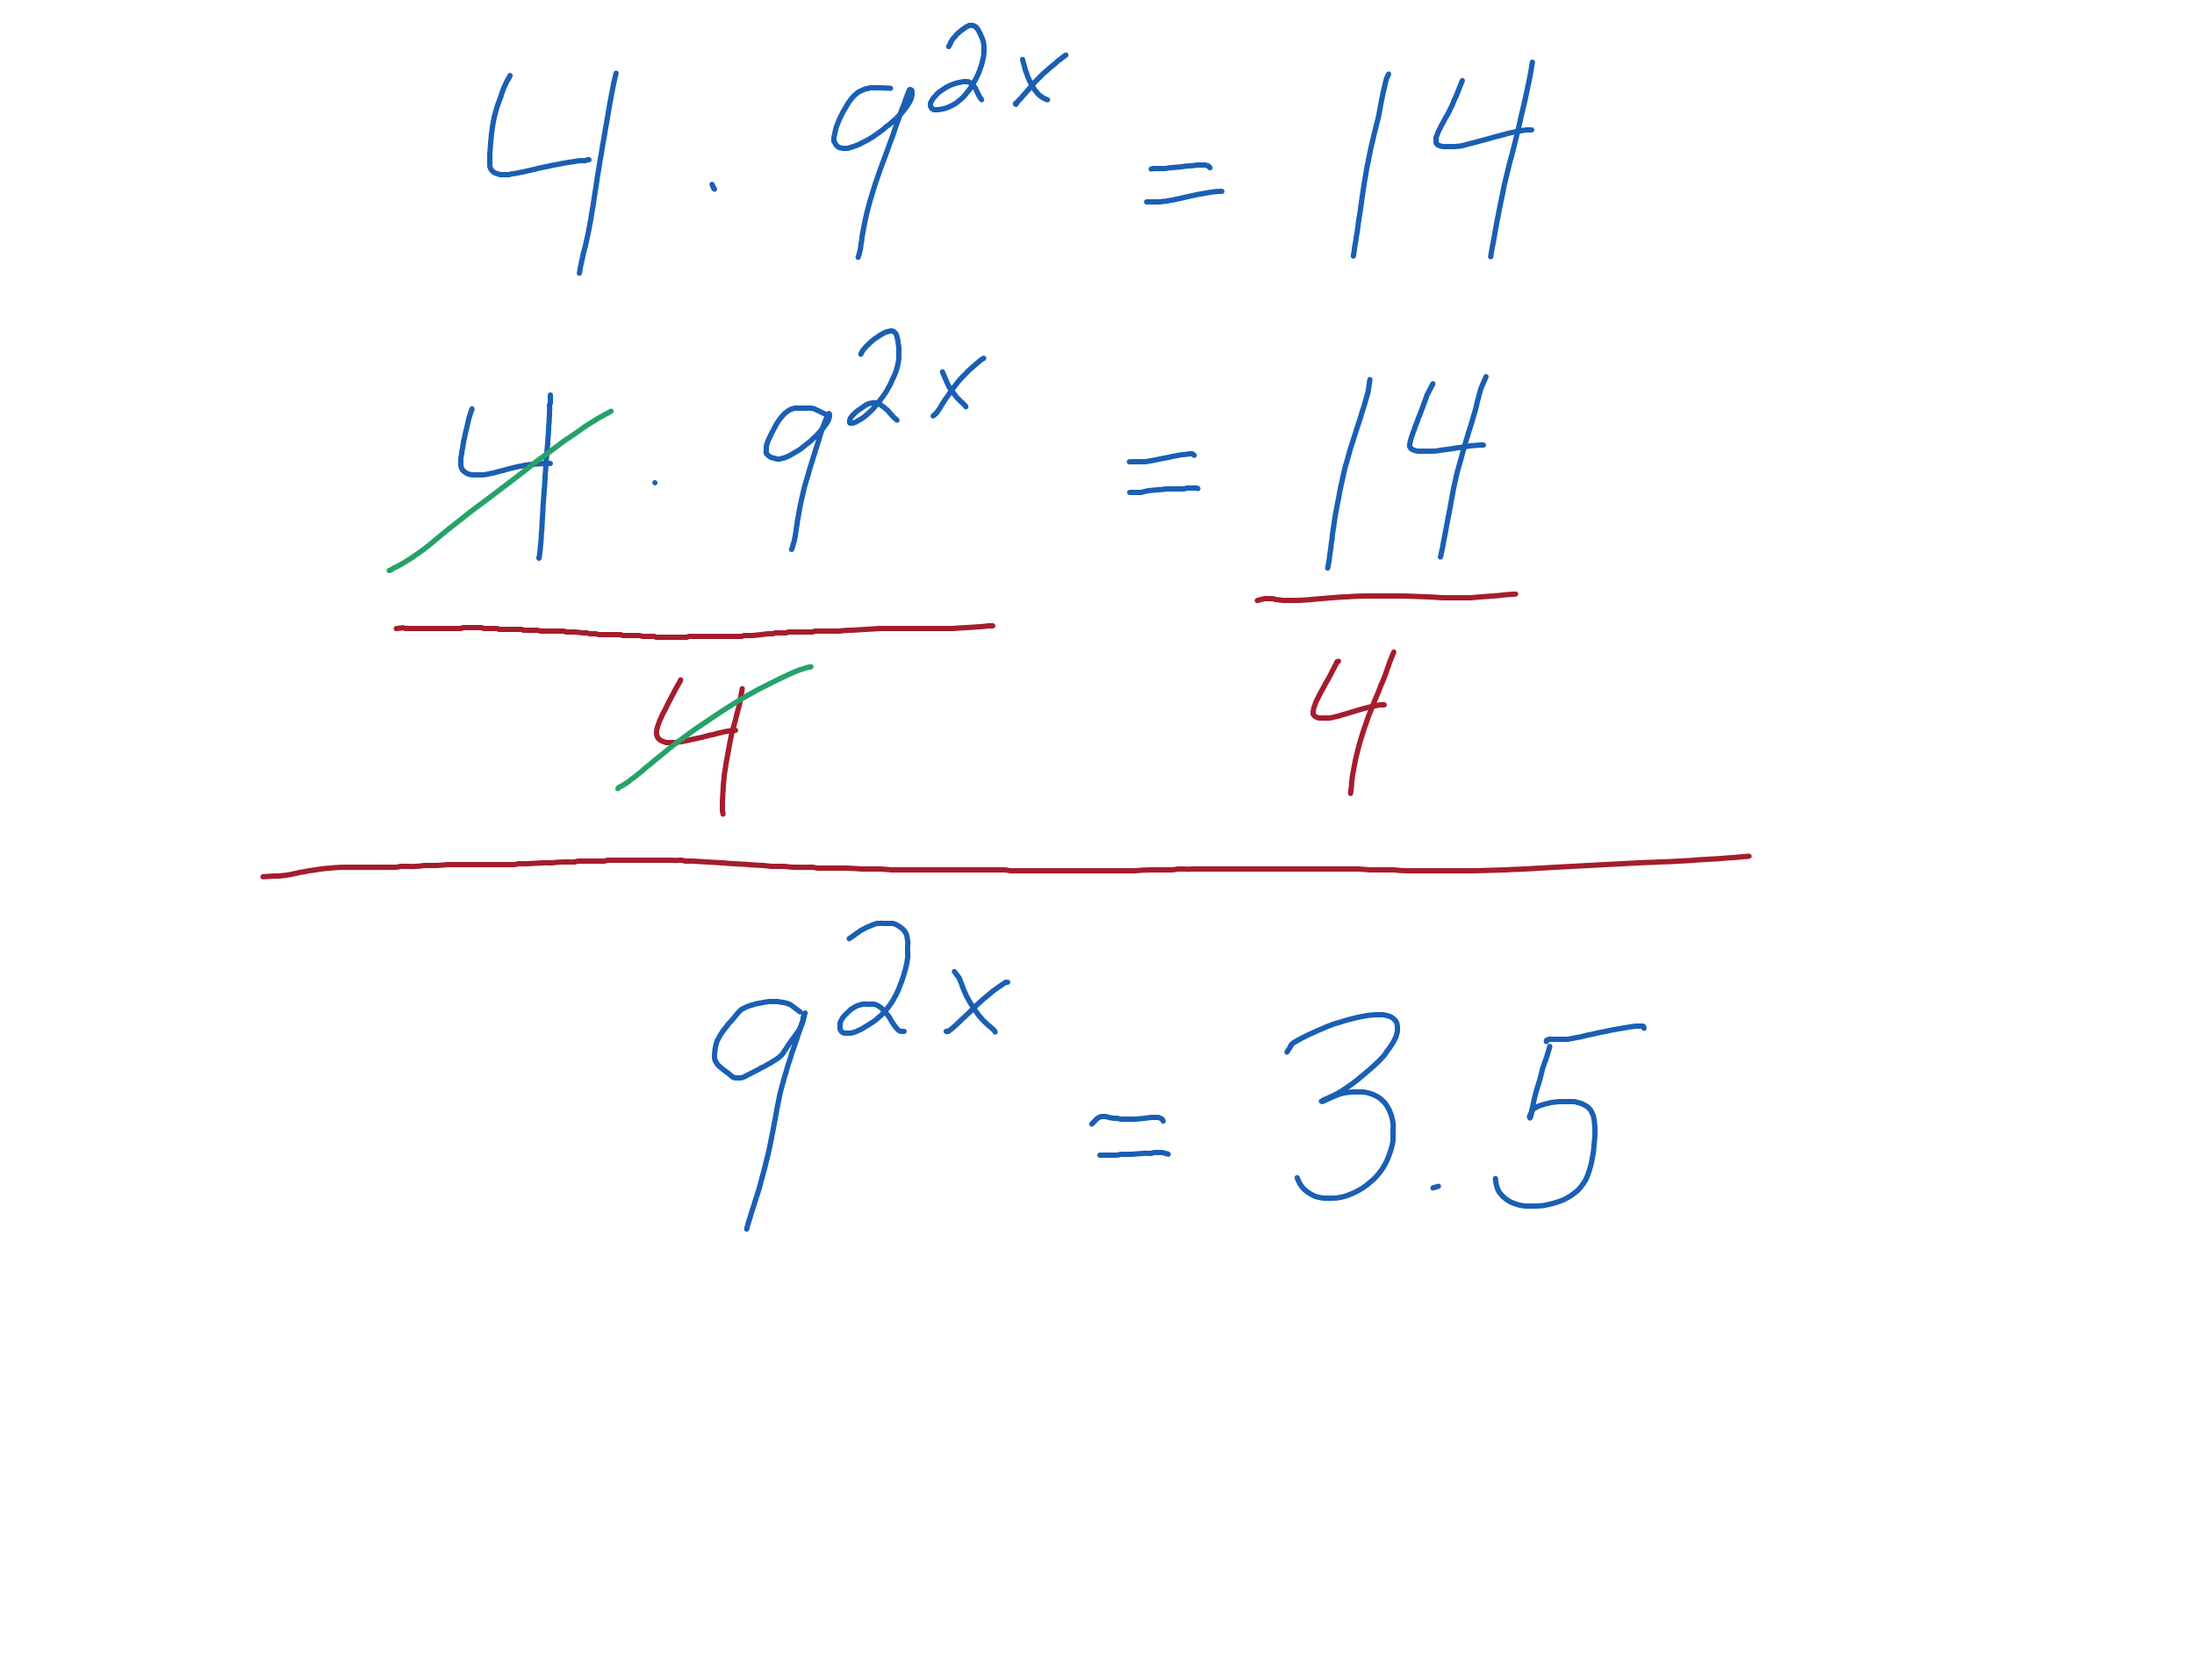 4 · 9^{2x} = 14
4 · 9^{2x} = 14
4 4
9^{2x} = 3.5